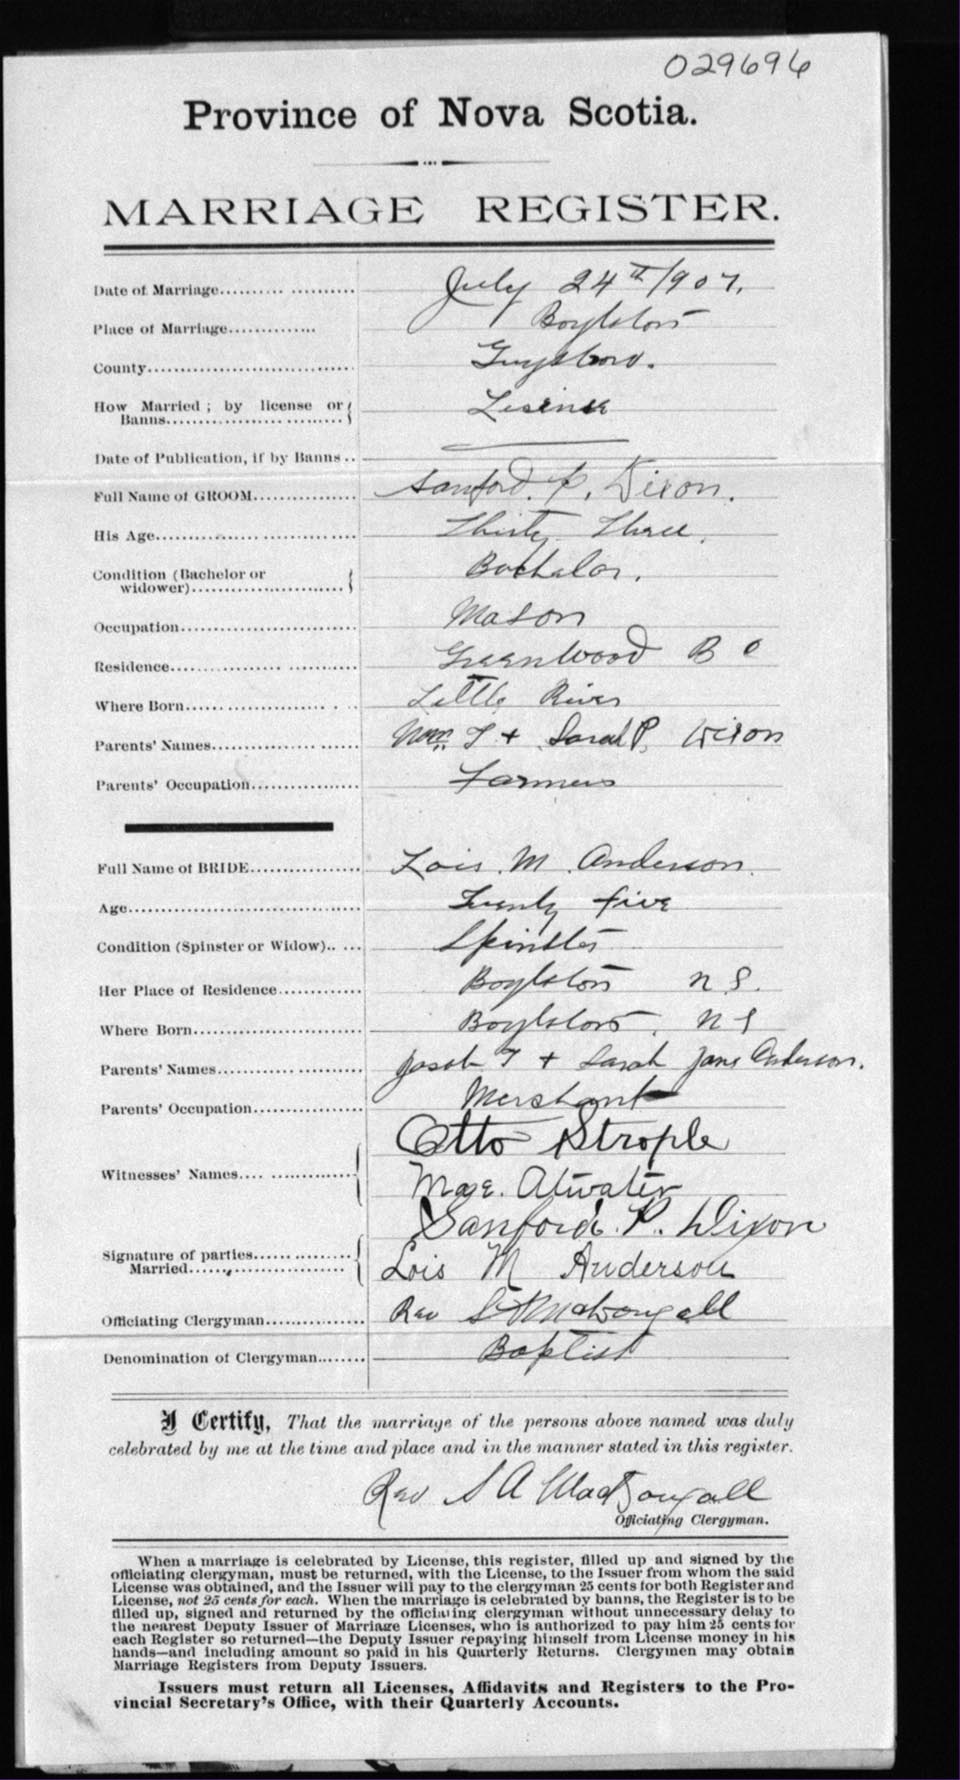 029696
Province of Nova Scotia.
MARRIAGE REGISTER.
Date of Marriage.......... ........... July 24th/907.
Place of Marriage.............. Boylston
County................................... Guysboro.
How Married ; by license or
Banns............................... Lisense
Date of Publication, if by Banns ..
Full Name of GROOM................. Sanford. P. Dixon.
His Age.................................. Thirty Three.
Condition (Bachelor or
widower).......................... Bachelor.
Occupation.............................. Mason
Residence................. ........... Greenwood B C
Where Born...................... . .. Little River
Parents' Names................ ...... Wm. T + Sarah P. Dixon
Parents' Occupation................. Farmers
Full Name of BRIDE.................. Lois. M. Anderson.
Age....................................... Twenty five
Condition (Spinster or Widow).. .... Spinster
Her Place of Residence.............. Boylston N S.
Where Born............................ Boylston. N S
Parents' Names............. .......... Jacob T + Sarah Jane Anderson.
Parents' Occupation.................. Merchant
Otto Strople
Witnesses' Names.... ...............
Mage. Atwater
Sanford. P. Dixon
Signature of parties..................
Married............................ Lois M Anderson
Officiating Clergyman............... Rev S A MacDougall
Denomination of Clergyman........ Baptist
I Certify, That the marriage of the persons above named was duly
celebrated by me at the time and place and in the manner stated in this register.
Rev S A MacDougall
Officiating Clergyman.
When a marriage is celebrated by License, this register, filled up and signed by the
officiating clergyman, must be returned, with the License, to the Issuer from whom the said
License was obtained, and the Issuer will pay to the clergyman 25 cents for both Register and
License, not 25 cents for each. When the marriage is celebrated by banns, the Register is to be
filled up, signed and returned by the officiating clergyman without unnecessary delay to
the nearest Deputy Issuer of Marriage Licenses, who is authorized to pay him 25 cents for
each Register so returned—the Deputy Issuer repaying himself from License money in his
hands—and including amount so paid in his Quarterly Returns. Clergymen may obtain
Marriage Registers from Deputy Issuers.
Issuers must return all Licenses, Affidavits and Registers to the Pro-
vincial Secretary's Office, with their Quarterly Accounts.